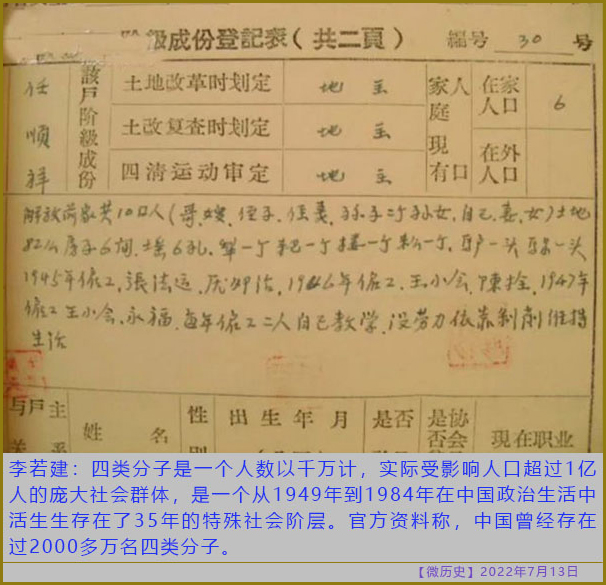 阶級成份登記表（共二頁） 編号 30 号
任順祥
該戶阶級成份
土地改革时划定 地主
土改复查时划定 地主
四清运动审定 地主
家庭現有人口
在家人口 6
在外人口
解放前家共10口人（哥、嫂、侄子、侄
孙子二个孙女、自己、妻、女）土地
82亩房子6间、6孔、犁一个耙一个耧一个一个、驴一头一头
1945年雇工、張法运、1946年雇工、王小会、陳拴、1947年
雇工王小会、永福、每年雇工二人自己教学、没劳力依靠剥削维持
生活
与戶主
关系
姓名
性别
出生年月
是否
是否协会
現在职业
李若建：四类分子是一个人数以千万计，实际受影响人口超过1亿
人的庞大社会群体，是一个从1949年到1984年在中国政治生活中
活生生存在了35年的特殊社会阶层。官方资料称，中国曾经存在
过2000多万名四类分子。
【微历史】2022年7月13日